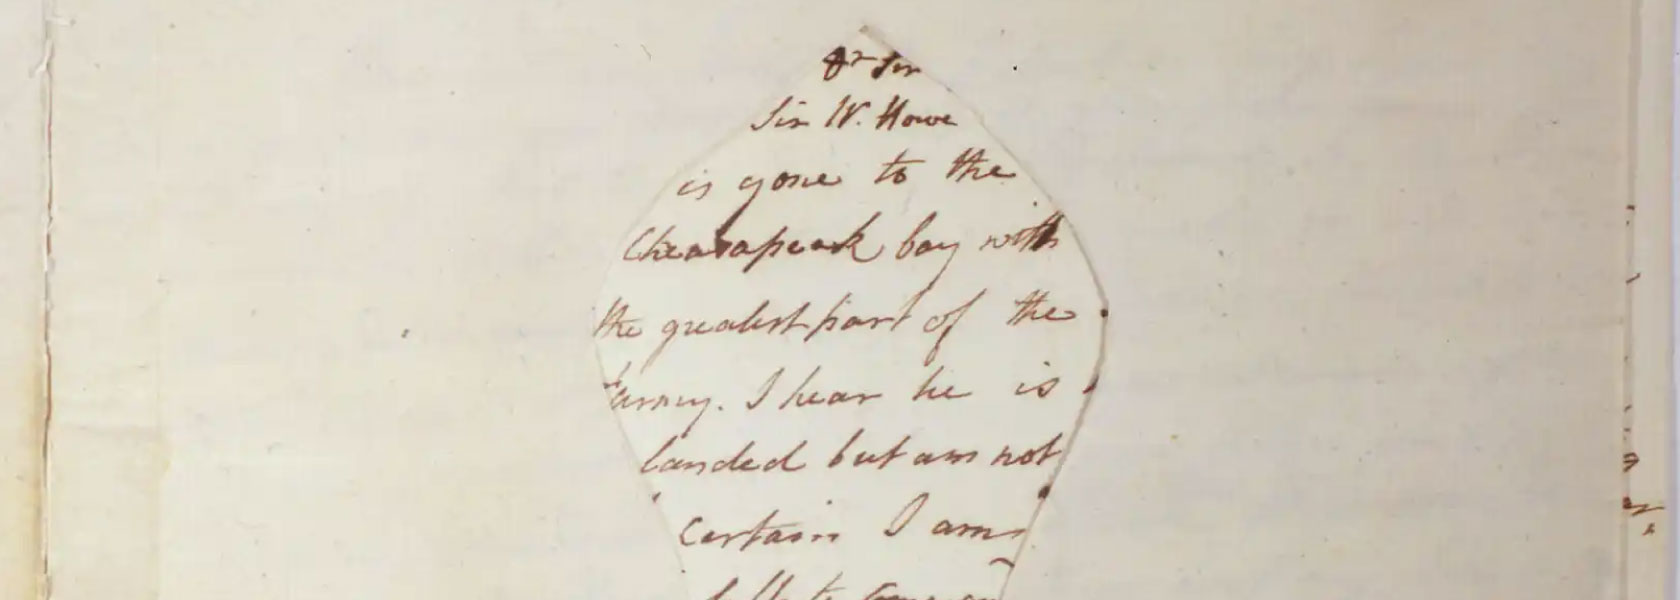 Dr Sir
Sir W. Howe
is gone to the
Cheasapeak bay with
the greatest part of the
army. I hear he is
landed but am not
certain I am
left to command